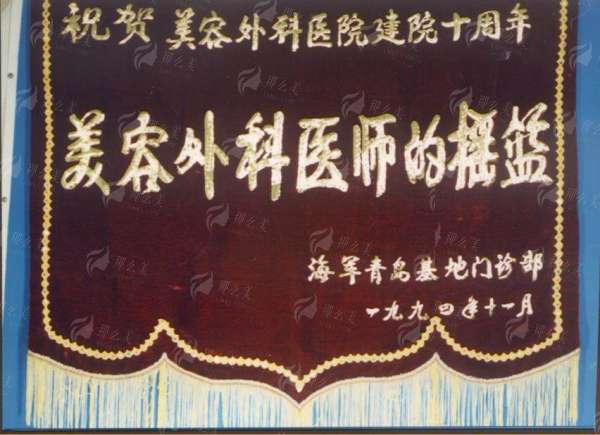 祝贺 美容外科医院建院十周年
美容外科医师的摇篮
海军青岛基地门诊部
一九九四年十一月